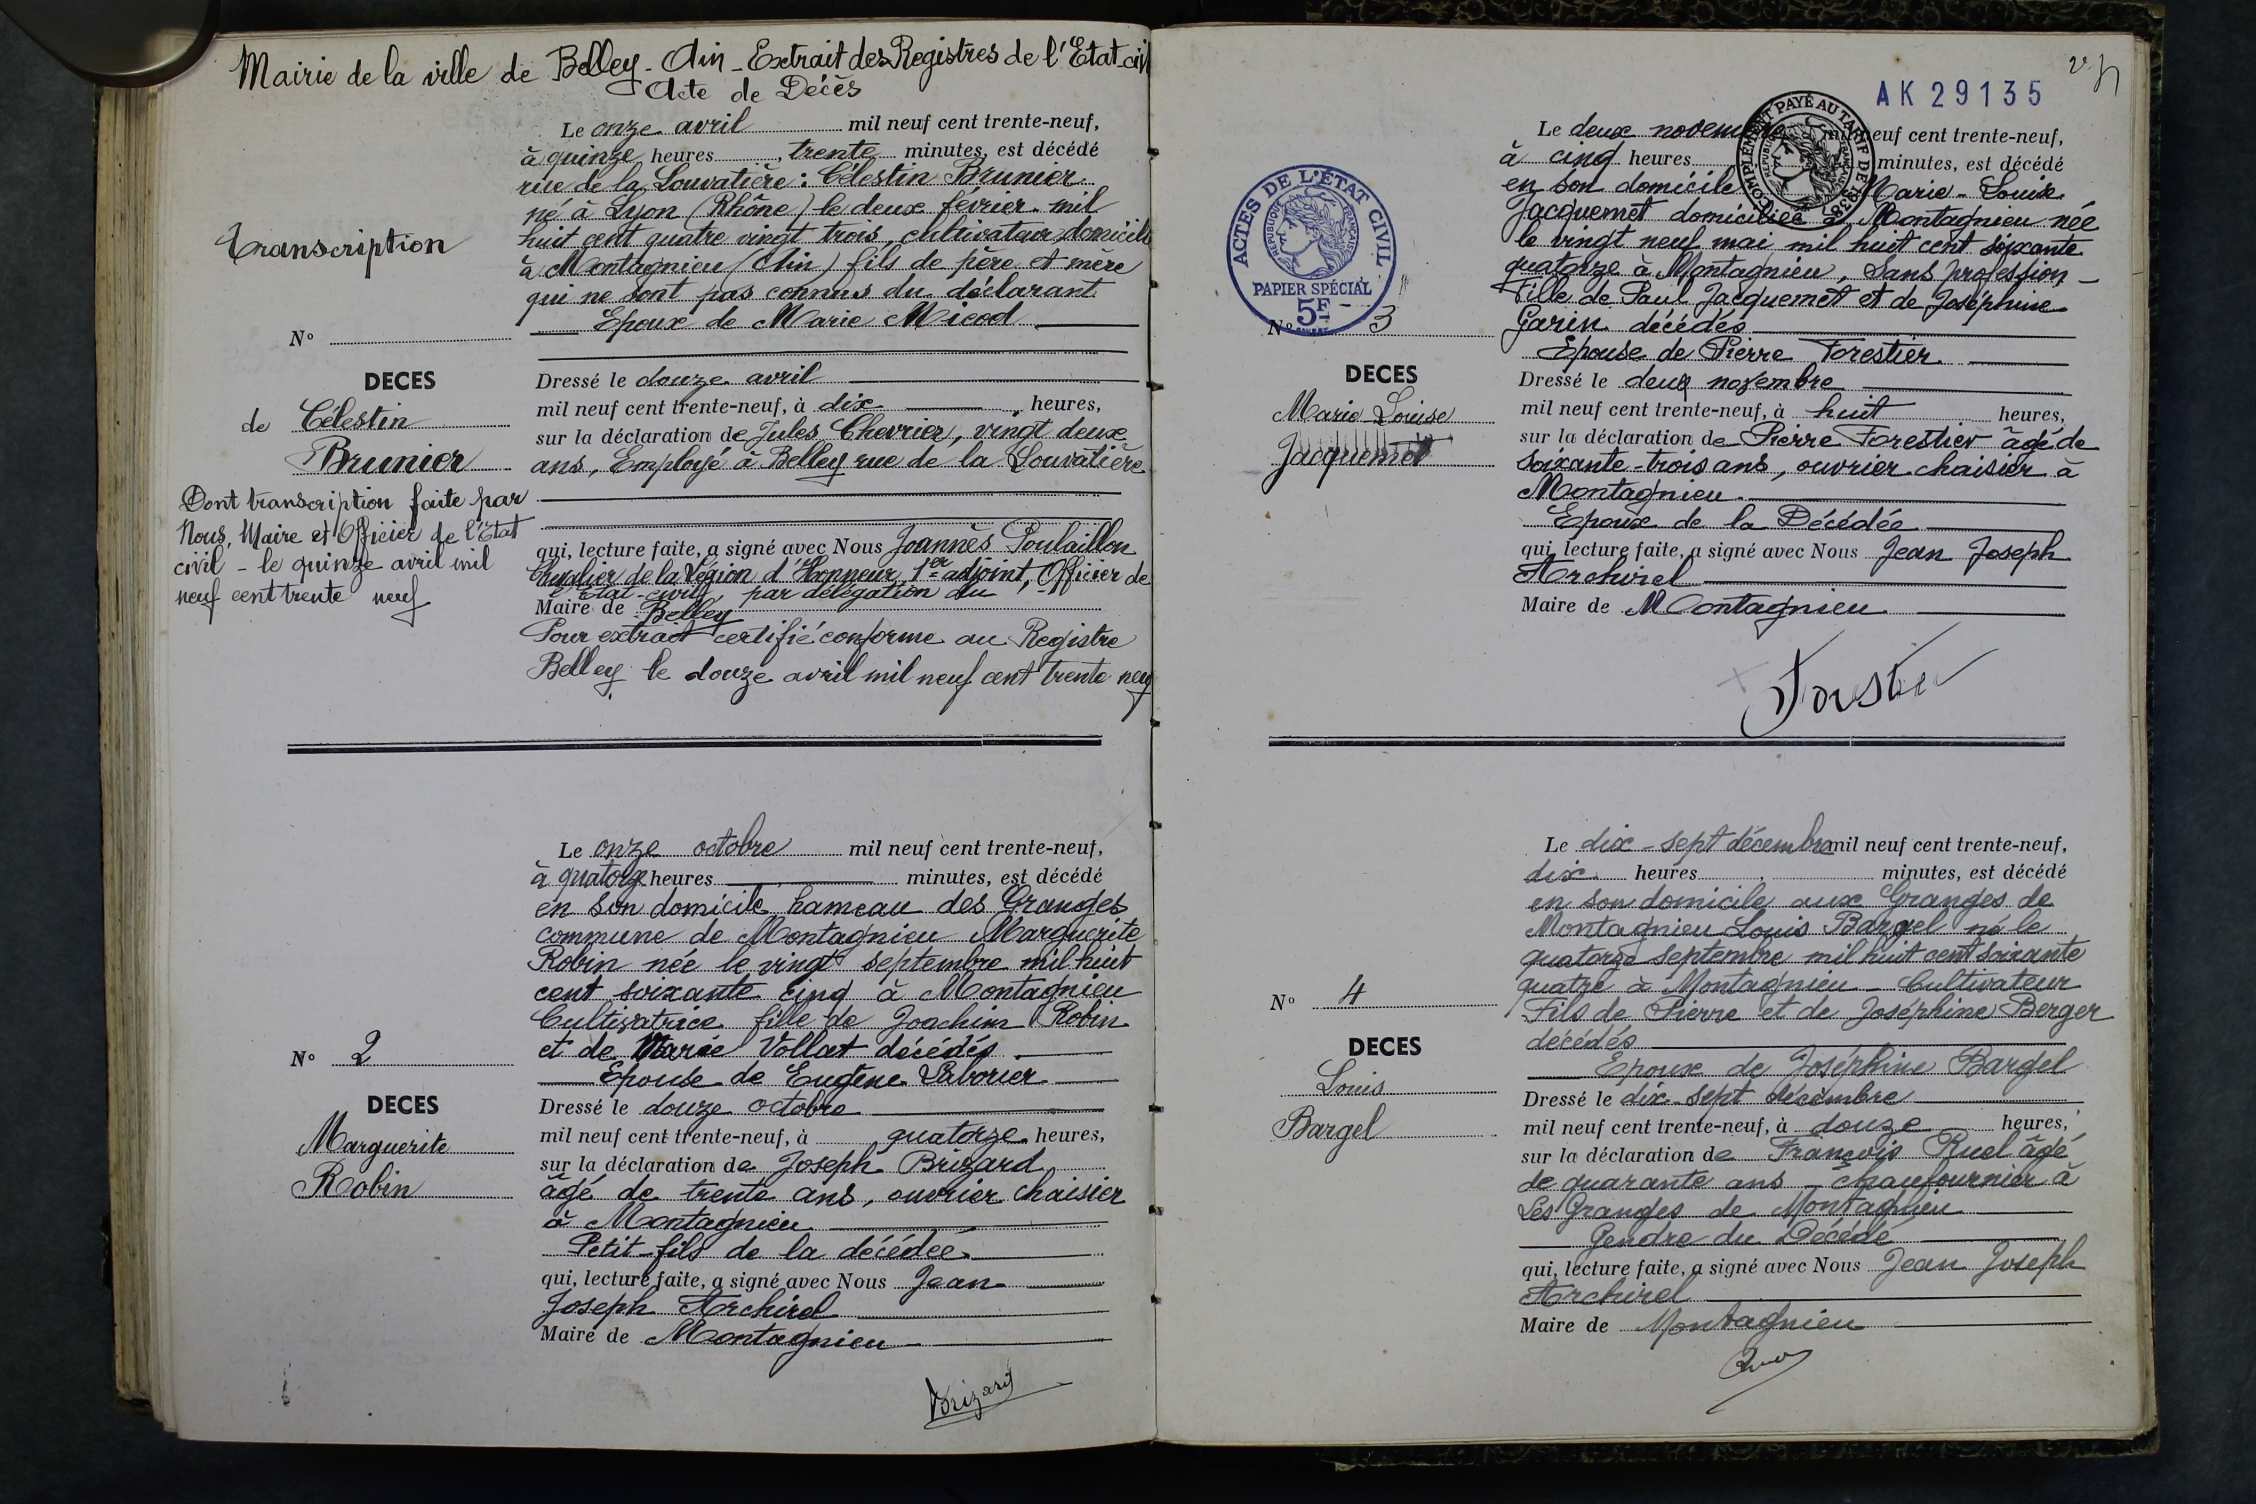 Mairie de la ville de Belley - Ain - Extrait des Registres de l'Etat-civil
Acte de Décès
Transcription
N°
DECES
de Célestin
Brunier
Dont transcription faite par
Nous, Maire et Officier de l'Etat
civil - le quinze avril mil
neuf cent trente neuf
Le onze avril mil neuf cent trente-neuf,
à quinze heures, trente minutes, est décédé
rue de la Louvatière : Célestin Brunier
né à Lyon (Rhône) le deux février mil
huit cent quatre vingt trois, cultivateur, domicilié
à Montagnieu (Ain) fils de père et mère
qui ne sont pas connus du déclarant
Epoux de Marie Micod
Dressé le douze avril
mil neuf cent trente-neuf, à dix heures,
sur la déclaration de Jules Chevrier, vingt deux
ans, Employé à Belley rue de la Louvatière
qui, lecture faite, a signé avec Nous Joannès Poulaillon
Chevalier de la Légion d'Honneur, 1er adjoint, Officier de
l'Etat-civil, par délégation du
Maire de Belley
Pour extrait certifié conforme au Registre
Belley le douze avril mil neuf cent trente neuf
N° 2
DECES
Marguerite
Robin
Le onze octobre mil neuf cent trente-neuf,
à quatorze heures minutes, est décédé
en son domicile hameau des Granges
commune de Montagnieu Marguerite
Robin née le vingt septembre mil huit
cent soixante cinq à Montagnieu
Cultivatrice fille de Joachim Robin
et de Marie Vollat décédés
Epouse de Eugène Laborier
Dressé le douze octobre
mil neuf cent trente-neuf, à quatorze heures,
sur la déclaration de Joseph Brizard
âgé de trente ans, ouvrier chaisier
à Montagnieu
Petit-fils de la décédée
qui, lecture faite, a signé avec Nous Jean
Joseph Archirel
Maire de Montagnieu
Brizard
AK 29135
ACTES DE L'ÉTAT CIVIL
RÉPUBLIQUE FRANÇAISE
PAPIER SPÉCIAL
5F
COMPLÉMENT PAYÉ AU TARIF DE 1938
RÉPUBLIQUE FRANÇAISE
N° 3
DECES
Marie-Louise
Jacquemet
Le deux novembre mil neuf cent trente-neuf,
à cinq heures minutes, est décédé
en son domicile Marie-Louise
Jacquemet domiciliée à Montagnieu née
le vingt neuf mai mil huit cent soixante
quatorze à Montagnieu, Sans profession -
Fille de Paul Jacquemet et de Joséphine
Garin décédés
Epouse de Pierre Forestier
Dressé le deux novembre
mil neuf cent trente-neuf, à huit heures,
sur la déclaration de Pierre Forestier âgé de
soixante-trois ans, ouvrier chaisier à
Montagnieu
Epoux de la Décédée
qui, lecture faite, a signé avec Nous Jean Joseph
Archirel
Maire de Montagnieu
N° 4
DECES
Louis
Bargel
Le dix-sept décembre mil neuf cent trente-neuf,
dix heures, minutes, est décédé
en son domicile aux Granges de
Montagnieu Louis Bargel né le
quatorze septembre mil huit cent soixante
quatre à Montagnieu - Cultivateur
Fils de Pierre et de Joséphine Berger
décédés
Epoux de Joséphine Bargel
Dressé le dix-sept décembre
mil neuf cent trente-neuf, à douze heures,
sur la déclaration de François Ruel âgé
de quarante ans - Chaufournier à
Les Granges de Montagnieu
Gendre du Décédé
qui, lecture faite, a signé avec Nous Jean Joseph
Archirel
Maire de Montagnieu